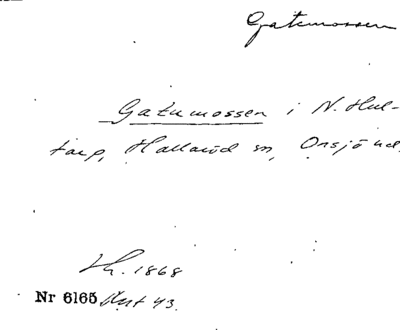 Gatumossen
Gatumossen i N. Hul-
tarp, Hallaröd sn, Onsjö hd.
Lh. 1868
Nr 6165